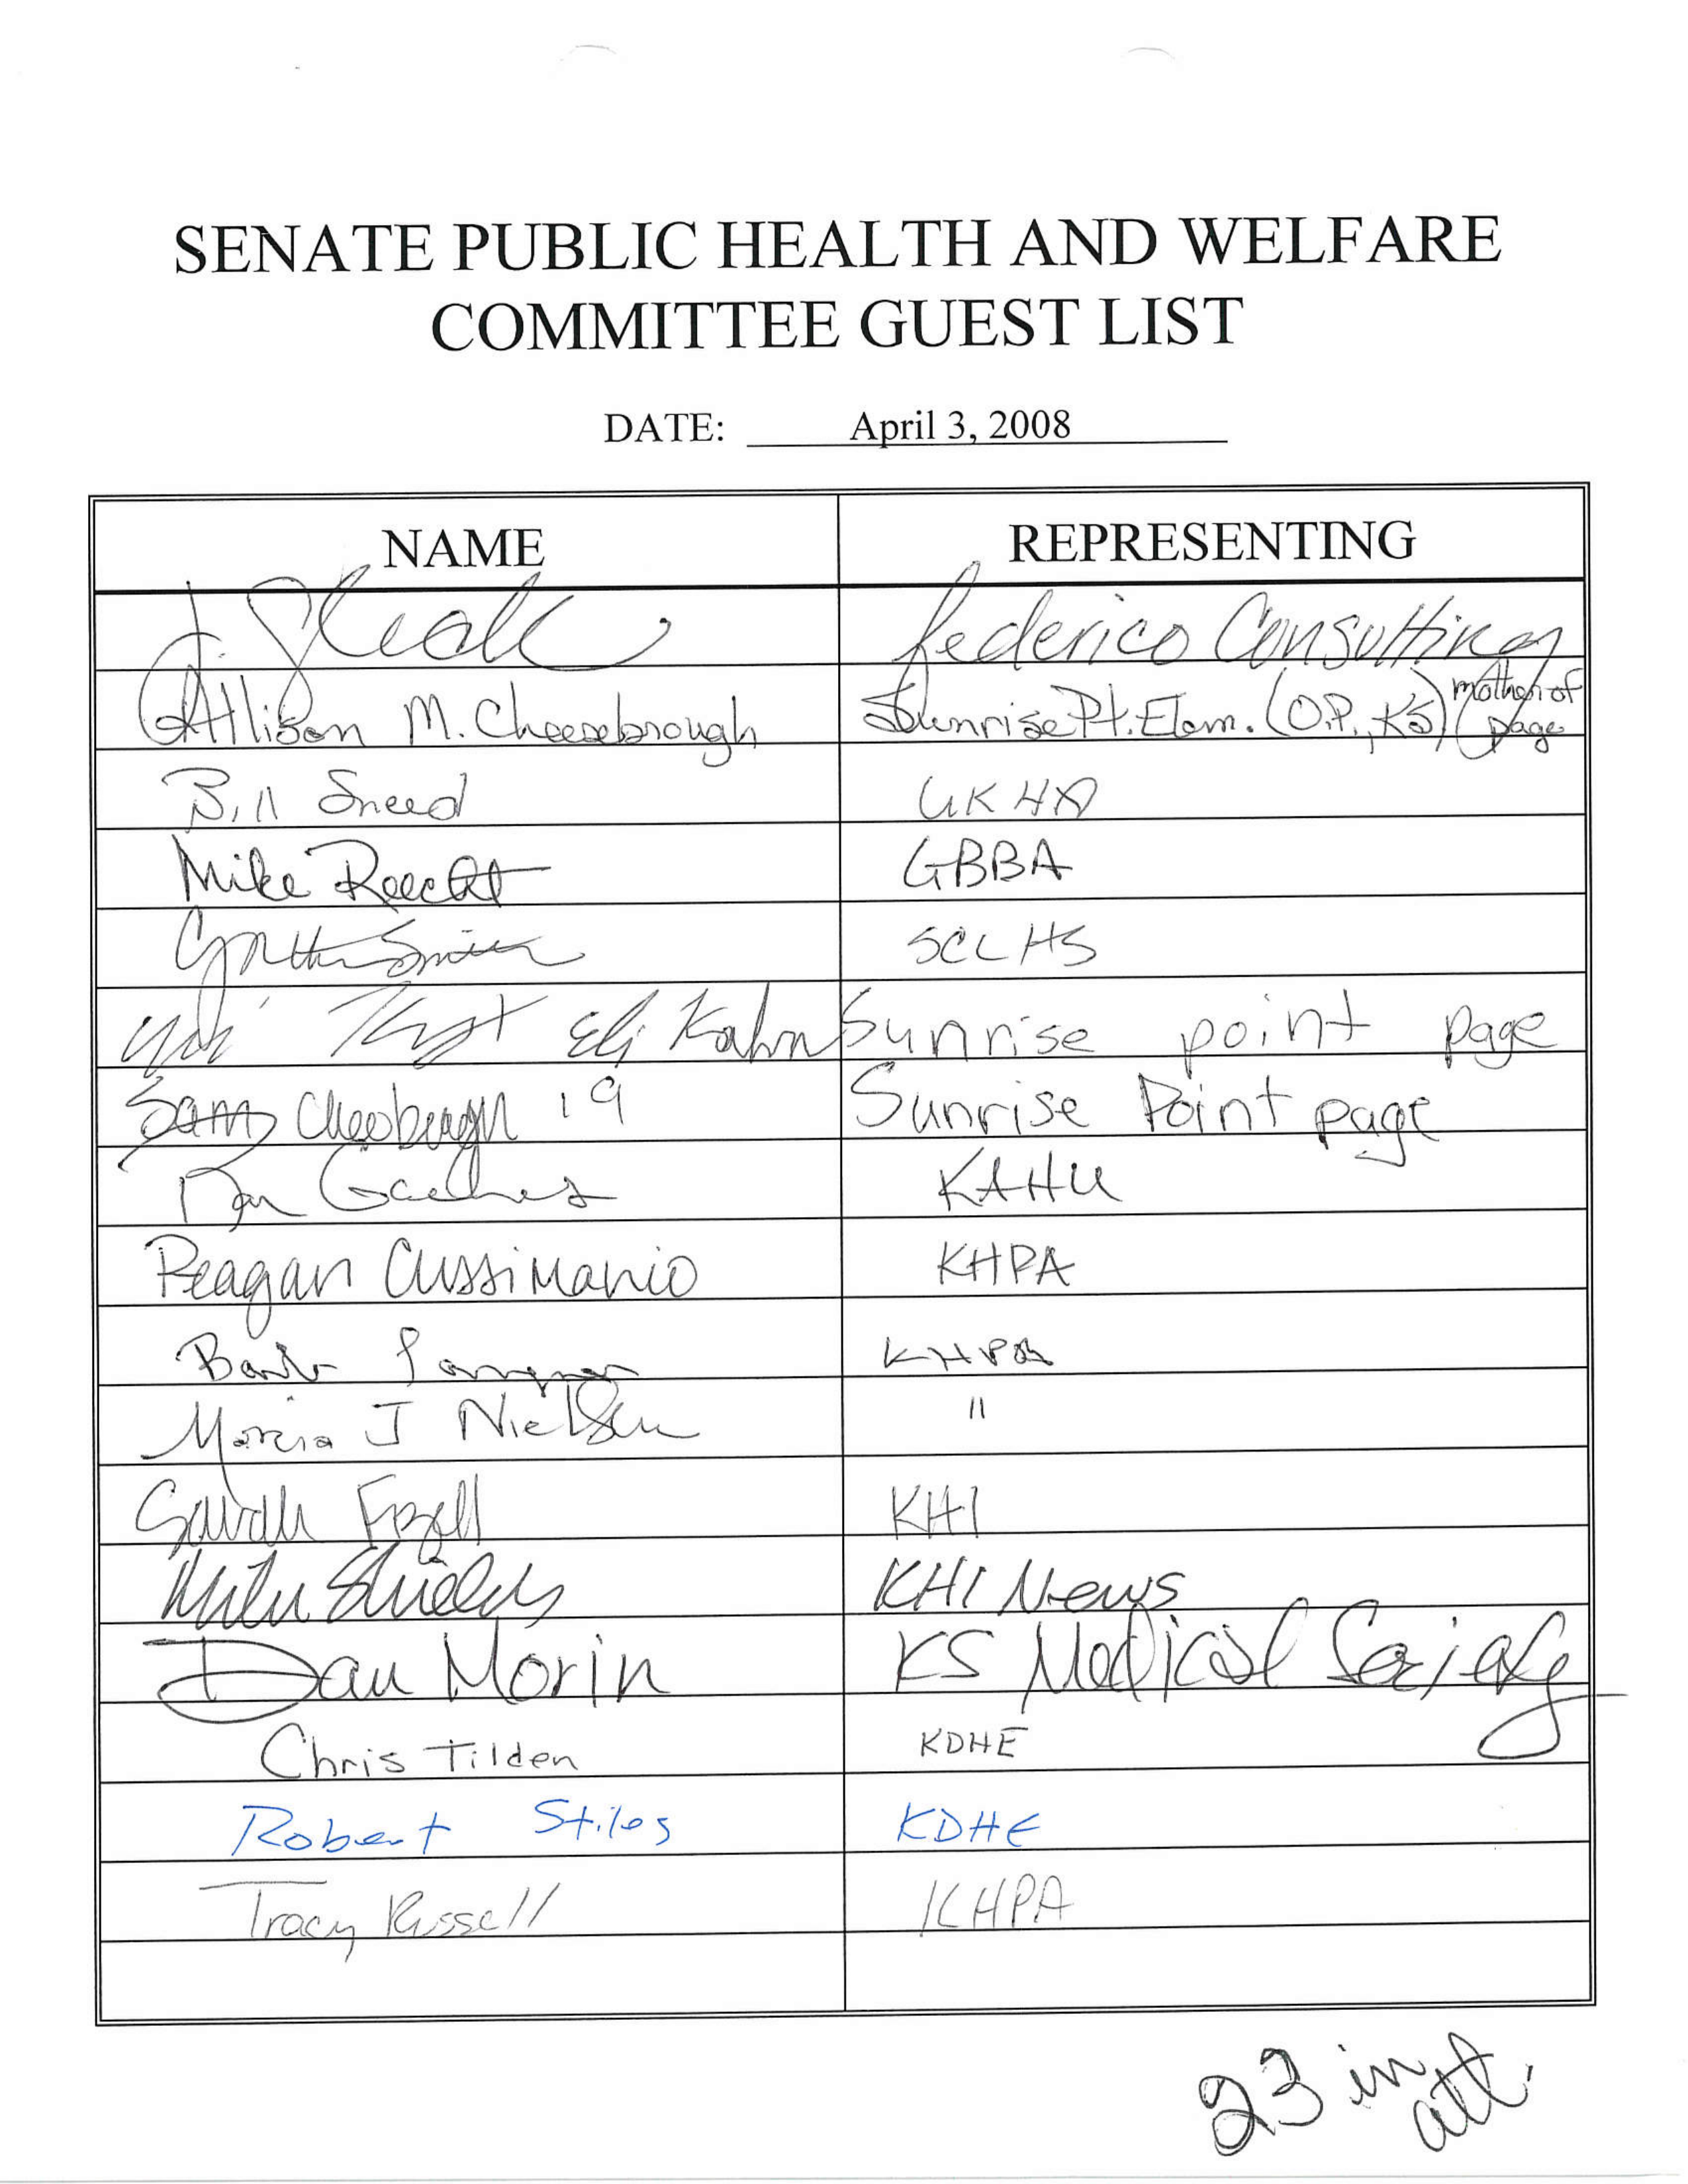 SENATE PUBLIC HEALTH AND WELFARE
COMMITTEE GUEST LIST
DATE: April 3, 2008
NAME REPRESENTING
J. Federico Consulting
Allison M. Cheesebrough Sunrise Pt. Elem. (O.P., KS) (mother of page
Bill Sneed UKHA
Mike Reecht GBBA
Smith SCLHS
Eli Kahn Sunrise point page
Sam Sunrise Point page
Gaches KAHU
Reagan Cussimanio KHPA
Barb Langner KHPA
Marcia J Nielsen "
Sarah KHI
Mike Shields KHI News
Dan Morin KS Medical Society
Chris Tilden KDHE
Robert Stiles KDHE
Tracy Russell KHPA
23 in
att.